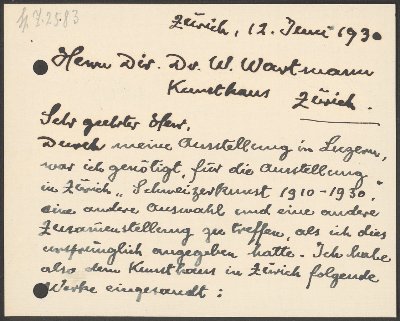 Zürich, 12. Juni 1930
Herrn Dir. Dr. W. Wartmann
Kunsthaus Zürich.
Sehr geehrter Herr,
Durch meine Ausstellung in Luzern,
war ich genötigt, für die Ausstellung
in Zürich „Schweizerkunst 1910-1930",
eine andere Auswahl und eine andere
Zusammenstellung zu treffen, als ich dies
ursprünglich angegeben hatte. Ich habe
also dem Kunsthaus in Zürich folgende
Werke eingesandt: